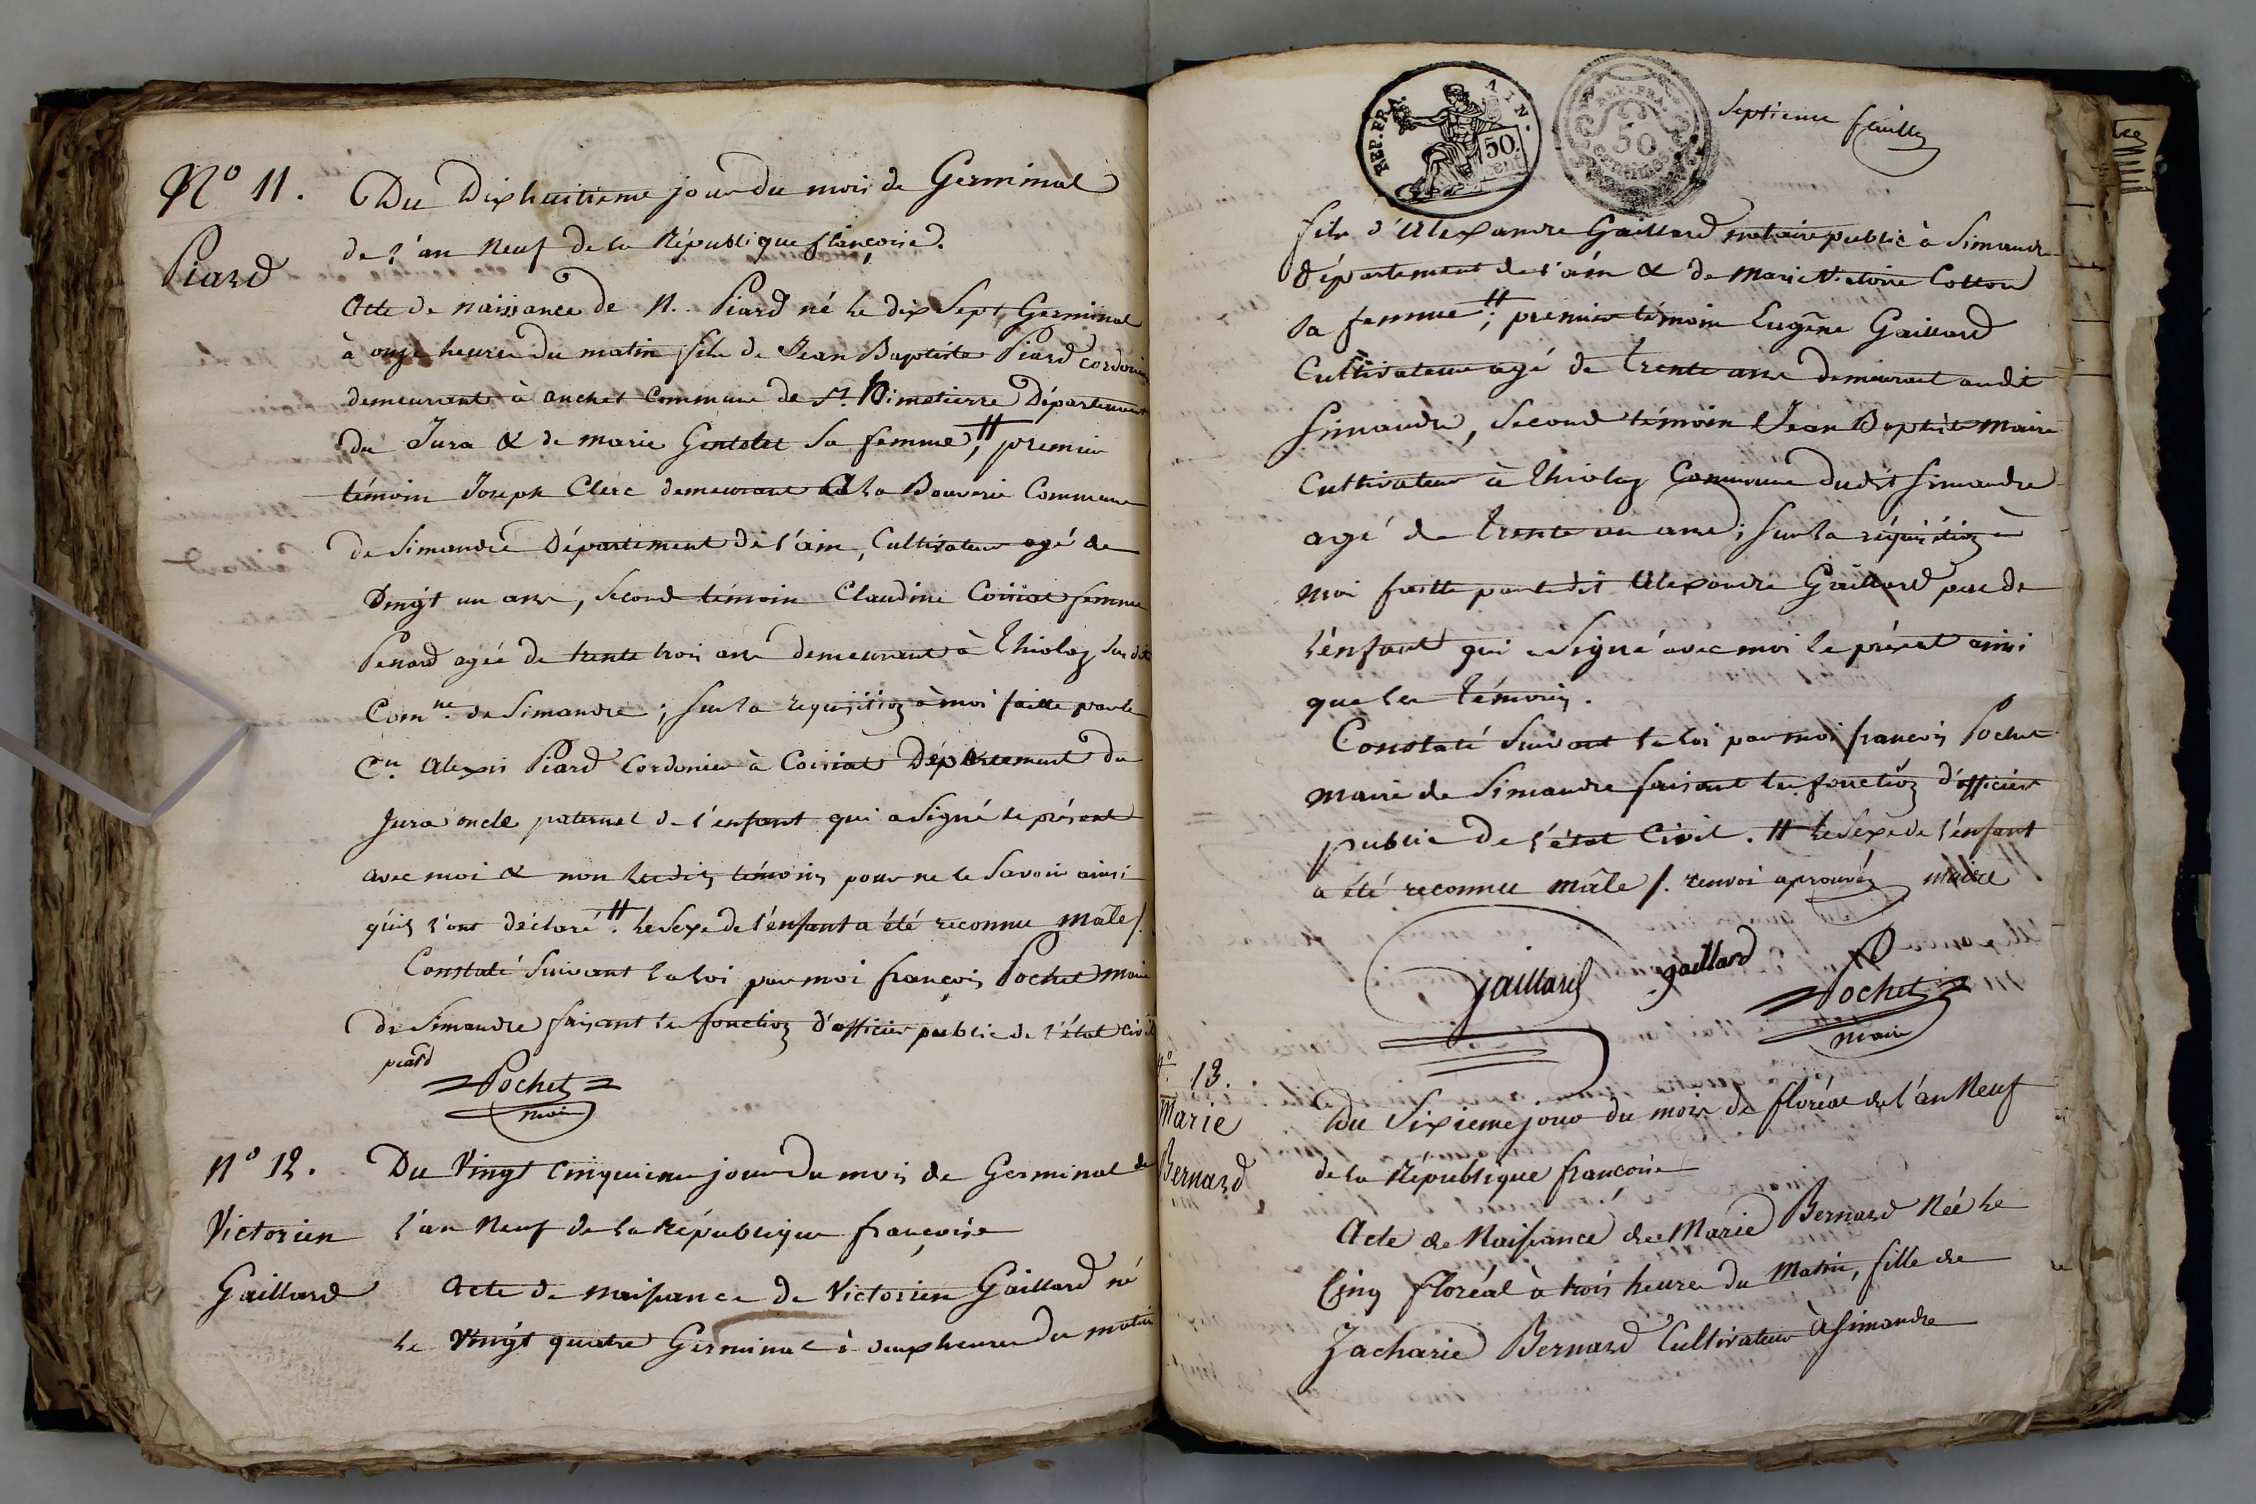 N° 11.
Piard
Du Dixhuitieme jour du mois de Germinal
de l'an Neuf de la République françoise.
Acte de naissance de N. Piard né le dix Sept Germinal
à onze heures du matin fils de Jean Baptiste Piard cordonier
demeurant à anchet Commune de St. himetierre Département
du Jura & de marie Gentelet sa femme, # premier
témoin Joseph Clerc demeurant à la Bouverie Commune
de Simandre Département de l'ain, Cultivateur agé de
Vingt un ans, second témoin Claudine Coiriat femme
Penard agée de trente trois ans demeurant à Thiolaz susdite
Comne. de Simandre; sur la requisition à moi faitte par le
Cen. Alexis Piard Cordonier à Coisiat Département du
Jura oncle paternel de l'enfant qui a signé le présent
avec moi & non lesdits témoins pour ne le savoir ainsi
qu'ils l'ont déclaré. # le sexe de l'enfant a été reconnu mâle /.
Constaté suivant la loi par moi françois Pochet maire
de Simandre faisant les fonctions d'officier public de l'état civil
piard
Pochet
maire
N° 12.
Victorien
Gaillard
Du Vingt cinquieme jour du mois de Germinal de
l'an Neuf de la République françoise
Acte de naissance de Victorien Gaillard né
le Vingt quatre Germinal à deux heures du matin
REP. FRA. AIN.
50 CENT
REP. FRA.
50
CENTIMES
Septieme feuillet
fils d'Alexandre Gaillard notaire public à Simandre
département de l'ain & de Marie Victoire Cotton
sa femme #; premier témoin Eugêne Gaillard
Cultivateur agé de trente ans demeurant audit
Simandre, second témoin Jean Baptiste maire
Cultivateur à Thiolaz Commune dudit Simandre
agé de trente un ans; sur la réquisition à
moi faitte par ledit Alexandre Gaillard pere de
l'enfant qui a signé avec moi le présent ainsi
que les témoins.
Constaté suivant la loi par moi françois Pochet
maire de Simandre faisant les fonctions d'officier
public de l'état civil. # le sexe de l'enfant
a été reconnu mâle /. renvoi aprouvés maire
Gaillard gaillard
Pochet
maire
N° 13.
Marie
Bernard
Du Sixieme jour du mois de floréal de l'an Neuf
de la République françoise
Acte de Naissance de Marie Bernard Née le
Cinq floréal à trois heures du Matin, fille de
Zacharie Bernard Cultivateur à Simandre